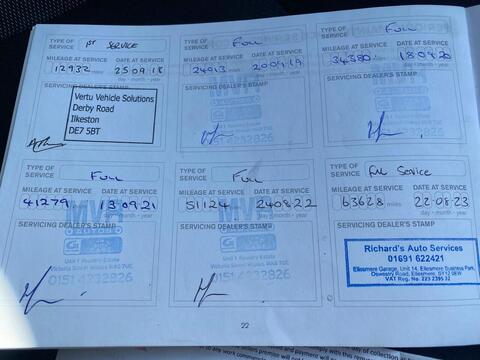 TYPE OF SERVICE 1st SERVICE
MILEAGE AT SERVICE DATE AT SERVICE
12932 miles 25 09 18
day - month - year
SERVICING DEALER'S STAMP
Vertu Vehicle Solutions
Derby Road
Ilkeston
DE7 5BT
TYPE OF SERVICE Full
MILEAGE AT SERVICE DATE AT SERVICE
day - month - year
SERVICING DEALER'S STAMP
MVA
0151 4232826
TYPE OF SERVICE Full
MILEAGE AT SERVICE DATE AT SERVICE
34380 miles 18 09 20
day - month - year
SERVICING DEALER'S STAMP
TYPE OF SERVICE Full
MILEAGE AT SERVICE DATE AT SERVICE
41279 13 09 21
day - month - year
SERVICING DEALER'S STAMP
AUTOS
0151 4232826
TYPE OF SERVICE Full
MILEAGE AT SERVICE DATE AT SERVICE
51124 24 08 22
day - month - year
SERVICING DEALER'S STAMP
0151 4232826
TYPE OF SERVICE Full Service
MILEAGE AT SERVICE DATE AT SERVICE
63628 miles 22 08 23
day - month - year
SERVICING DEALER'S STAMP
Richard's Auto Services
01691 622421
Ellesmere Garage, Unit 14, Ellesmere Business Park,
Oswestry Road, Ellesmere, SY12 0EW
VAT Reg. No. 223 2395 32
22